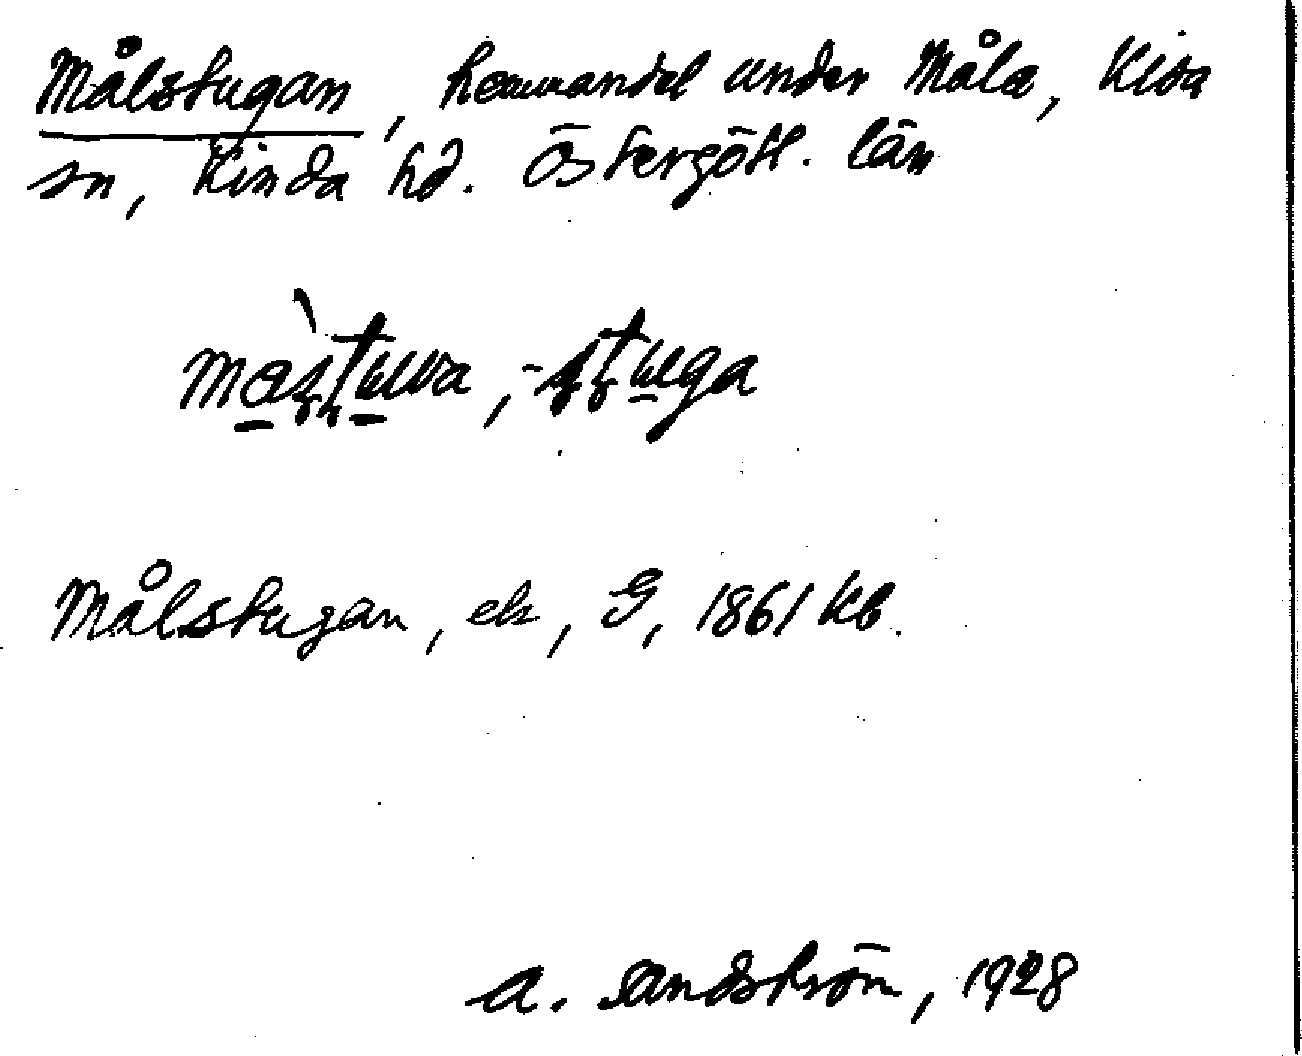 Målstugan, hemmandel under Måla, Kisa
sn, Kinda hd. Östergötl. län
Målstugan, ek, G, 1861 kb.
A. Sandström, 1928